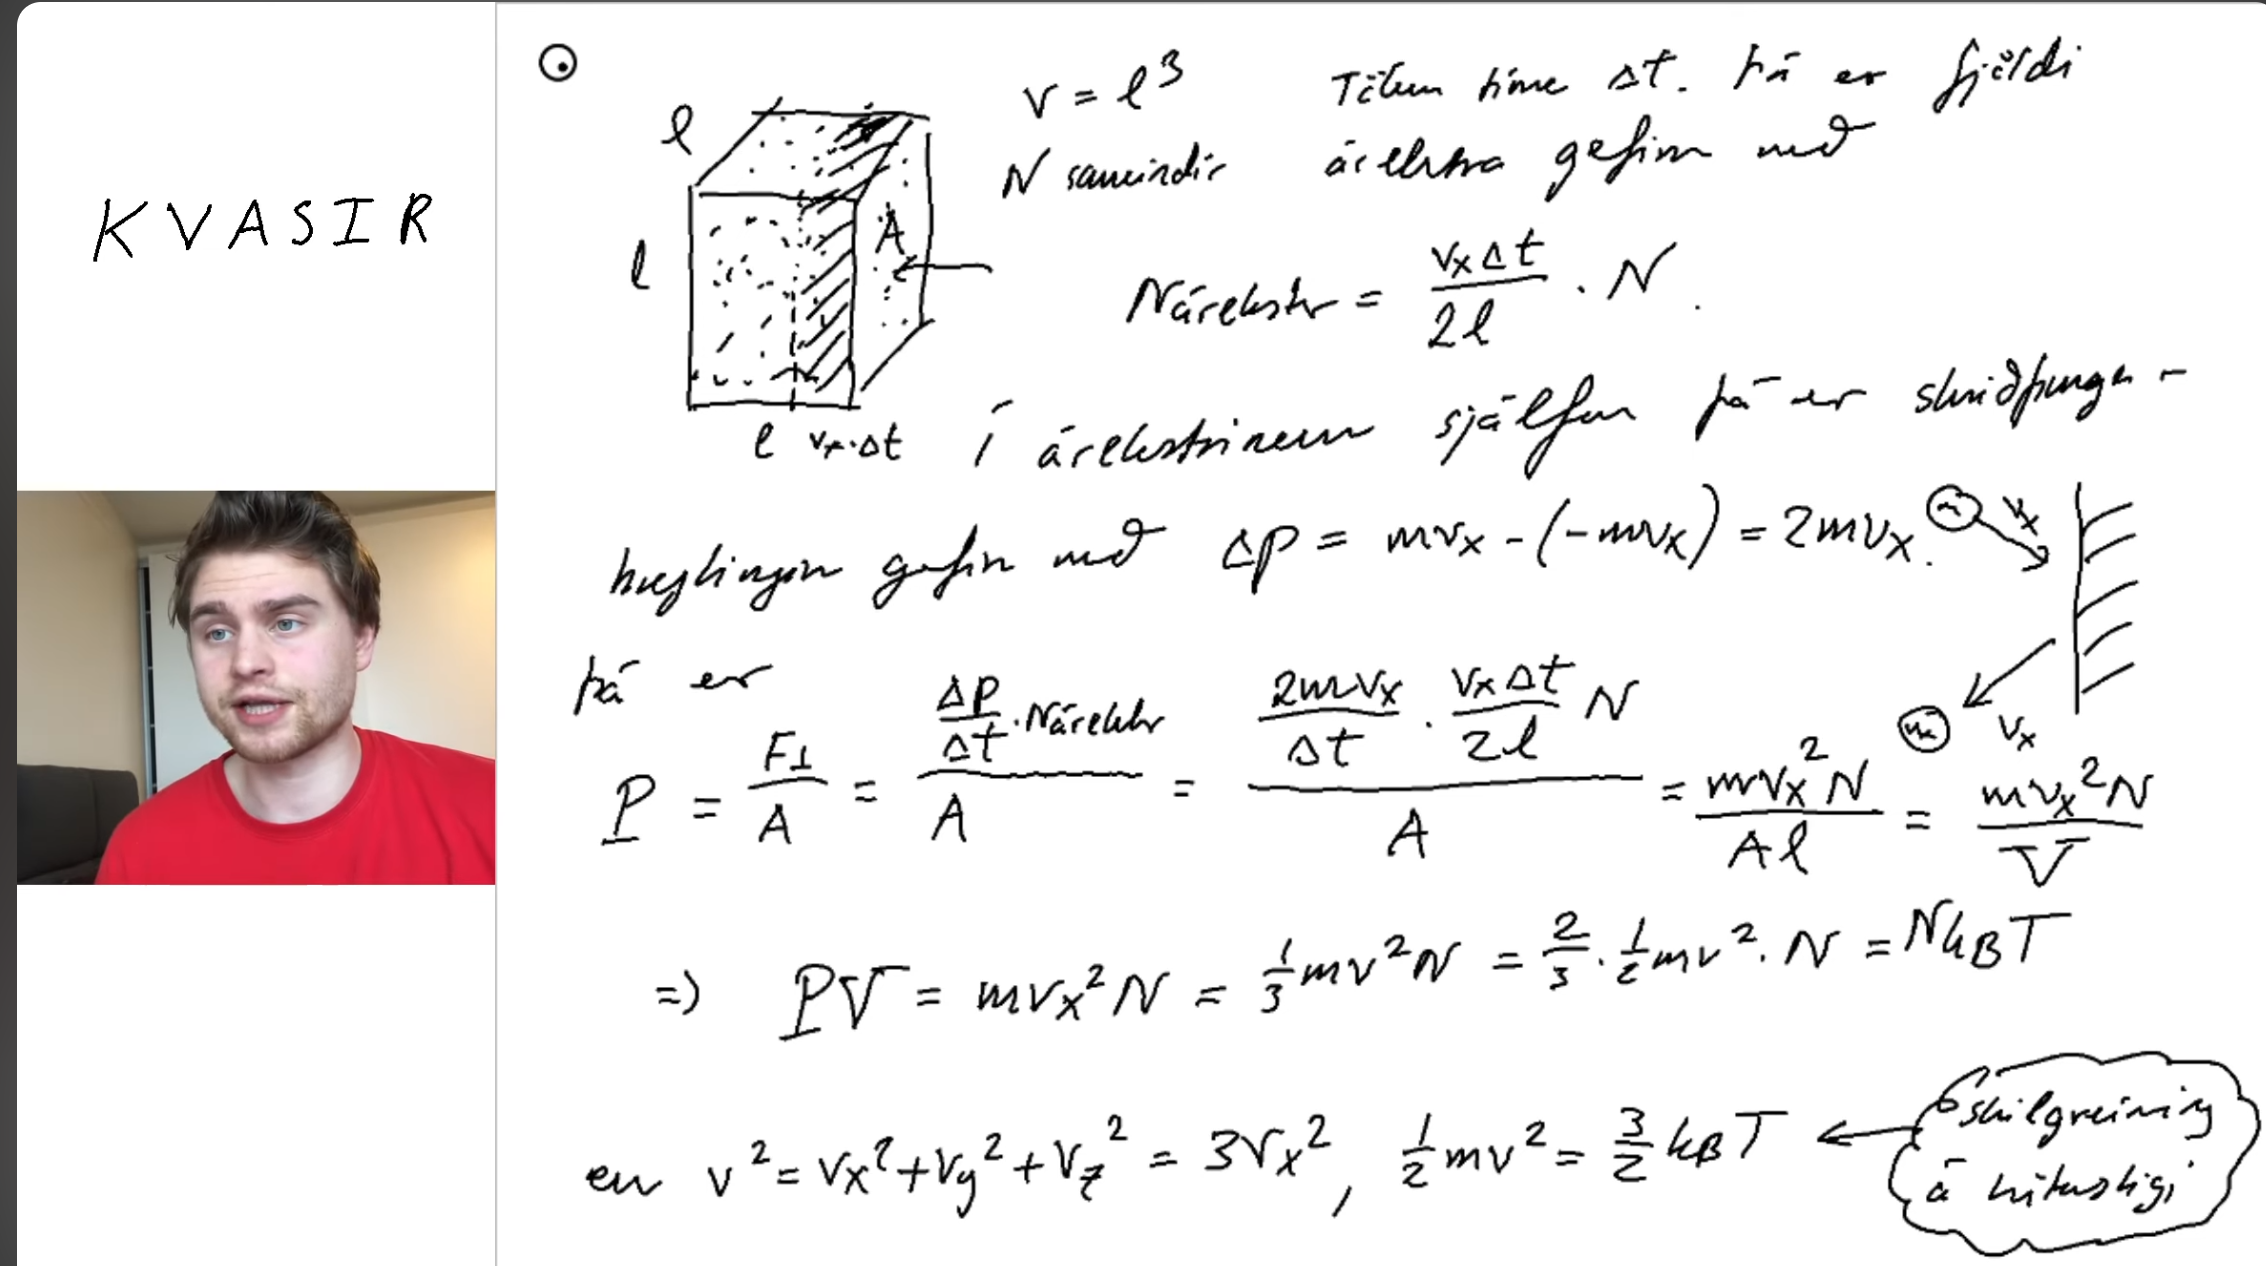 KVASIR
l
l
l
vx·Δt
A
V = l³
N sameindir
Tökum tíma Δt. Þá er fjöldi
árekstra gefinn með
Nárekstr = vxΔt / 2l · N.
Í árekstrinum sjálfum þá er skriðþunga-
breytingin gefin með Δp = mvx - (-mvx) = 2mvx.
m vx
m vx
þá er
P = F⊥ / A = (Δp/Δt · Nárekstr) / A = (2mvx/Δt · vxΔt/2l N) / A = mvx²N / Al = mvx²N / V
=> PV = mvx²N = 1/3 mv²N = 2/3 · 1/2 mv² · N = NkBT
en v² = vx² + vy² + vz² = 3vx², 1/2 mv² = 3/2 kBT ←
skilgreining
á hitastigi